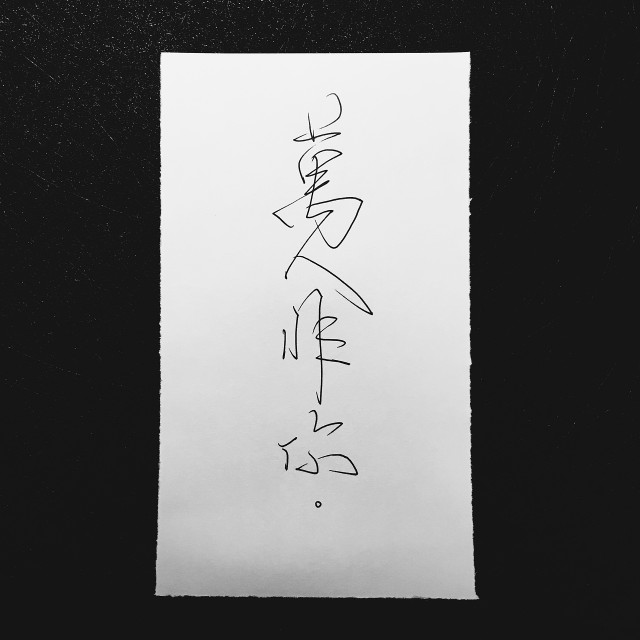 萬人非你。